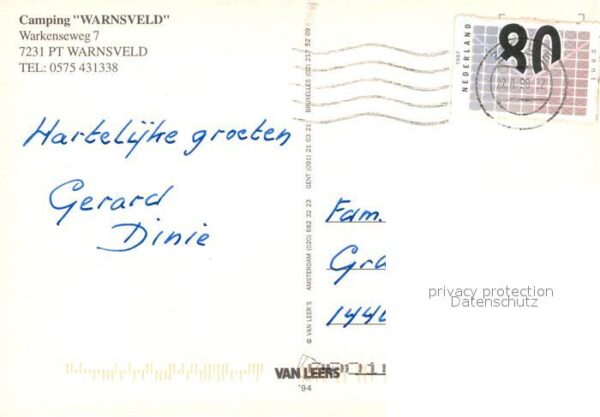 Camping "WARNSVELD"
Warkenseweg 7
7231 PT WARNSVELD
TEL: 0575 431338
NEDERLAND
1997
80
Hartelijke groeten
Gerard
Dinie
© VAN LEER'S AMSTERDAM (020) 682 32 23 GENT (091) 21 03 21 BRUXELLES (02) 217 52 09
Fam.
Gra
144
privacy protection
Datenschutz
VAN LEER'S
'94